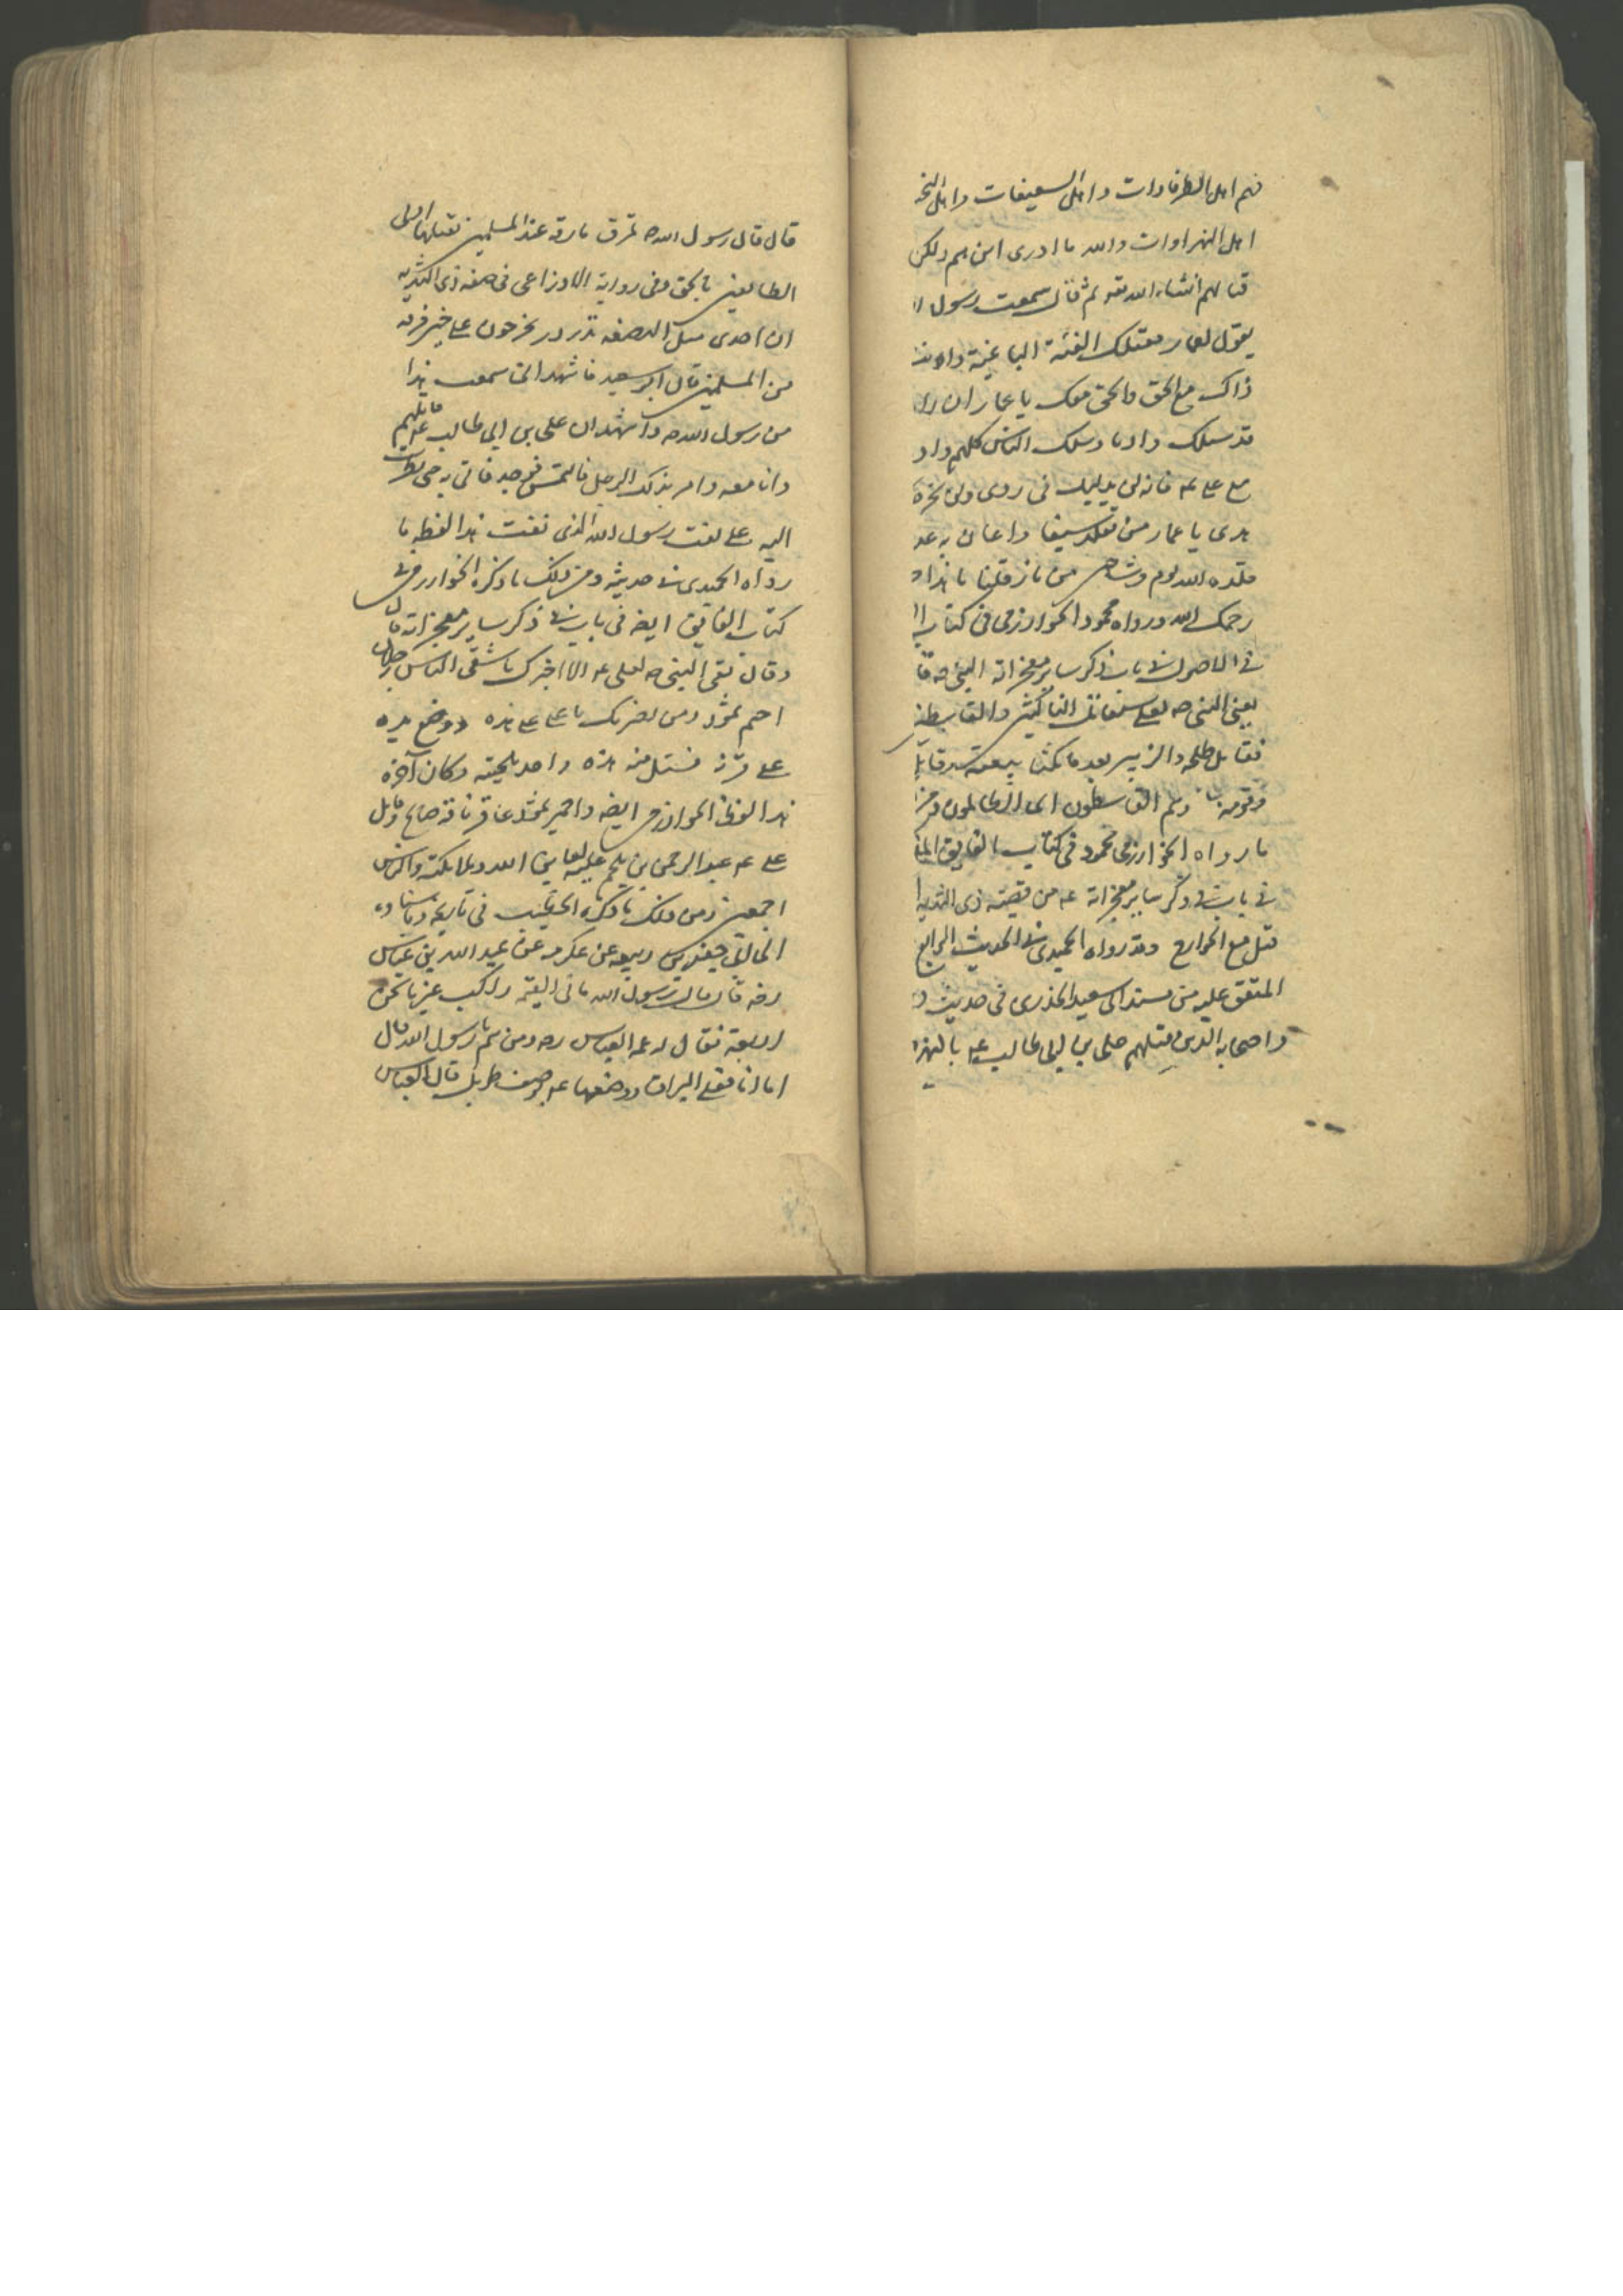 فهم اهل الطرفاوات واهل السعيفات واهل النخ
اهل النهراوات والله ما ادرى اين هم ولكن
قتالهم انشاء الله تعم ثم قال سمعت رسول ا
يقول لعمار تقتلك الفئة الباغية وانت
ذاك مع الحق والحق معك يا عمار ان را
قد سلك واديا وسلك الناس كلهم واد
مع علي عم فانه لن يدليك في ردى ولن يخرج
هدى يا عمار من تقلد سيفا واعان به عد
قلده الله يوم وشاحين من نار قلنا يا هذا
رحمك الله ورواه محمود الخوارزمي في كتاب ا
في الاصول في باب ذكر ساير معجزاته النبي صه قا
يعني النبي صه لعلي ستقاتل الناكثين والقاسطين
فقاتل طلحه والزبير بعد ما نكثا بيعته وقاتل
وقومه وهم القاسطون اى الظالمون ومن
ما رواه الخوارزمي محمود في كتاب الفايق
في باب في ذكر ساير معجزاته عم من قصة ذى الثديه
قتل مع الخوارج وقد رواه الحميدي في الحديث الرابع
المتفق عليه من مسند ابى سعيد الخدرى فى حديث
واصحابه الذين قتلهم على بن ابى طالب عم بالنهر
قال قال رسول الله صه تمرق مارقة عند المسلمين تقتلها اولى
الطايفين بالحق وفي رواية الاوزاعى فى صفه ذى الثديه
ان احدى مثل البضعه تدردر يخرجون على خير فرقه
من المسلمين قال ابو سعيد فاشهد انى سمعت هذا
من رسول الله صه واشهد ان على بن ابى طالب عم قاتلهم
وانا معه وامر بذلك الرجل فالتمس فوجد فاتى به حتى نظرت
اليه على نعت رسول الله الذى نعت هذا لفظه ما
رواه الحميدى في حديثه ومن ذلك ما ذكره الخوارزمى فى
كتاب الفايق ايضه فى باب في ذكر ساير معجزاته قال
وقال لقى النبى صه لعلى عم الا اخبرك باشقى الناس رجلان
احمر ثمود ومن يضربك يا على على هذه ووضع يده
على قرنه فتبتل منه هذه واخذ بلحيته وكان آخره
هذا لفظ الخوارزمى ايضه واحمر ثمود عاقر ناقة صالح وقاتل
على عم عبد الرحمن بن ملجم عليه لعاين الله وملائكته والناس
اجمعين ومن ذلك ما ذكره الخطيب فى تاريخه
جعفر بن ربيعه عن عكرمه عن عبد الله بن عباس
رضه قال قال رسول الله ما فى القيمة راكب غيرنا نحن
اربعة فقال له عمه العباس رضه ومن هم يا رسول الله قال
اما انا فعلى البراق ووصفها عم بوصف طويل قال العباس